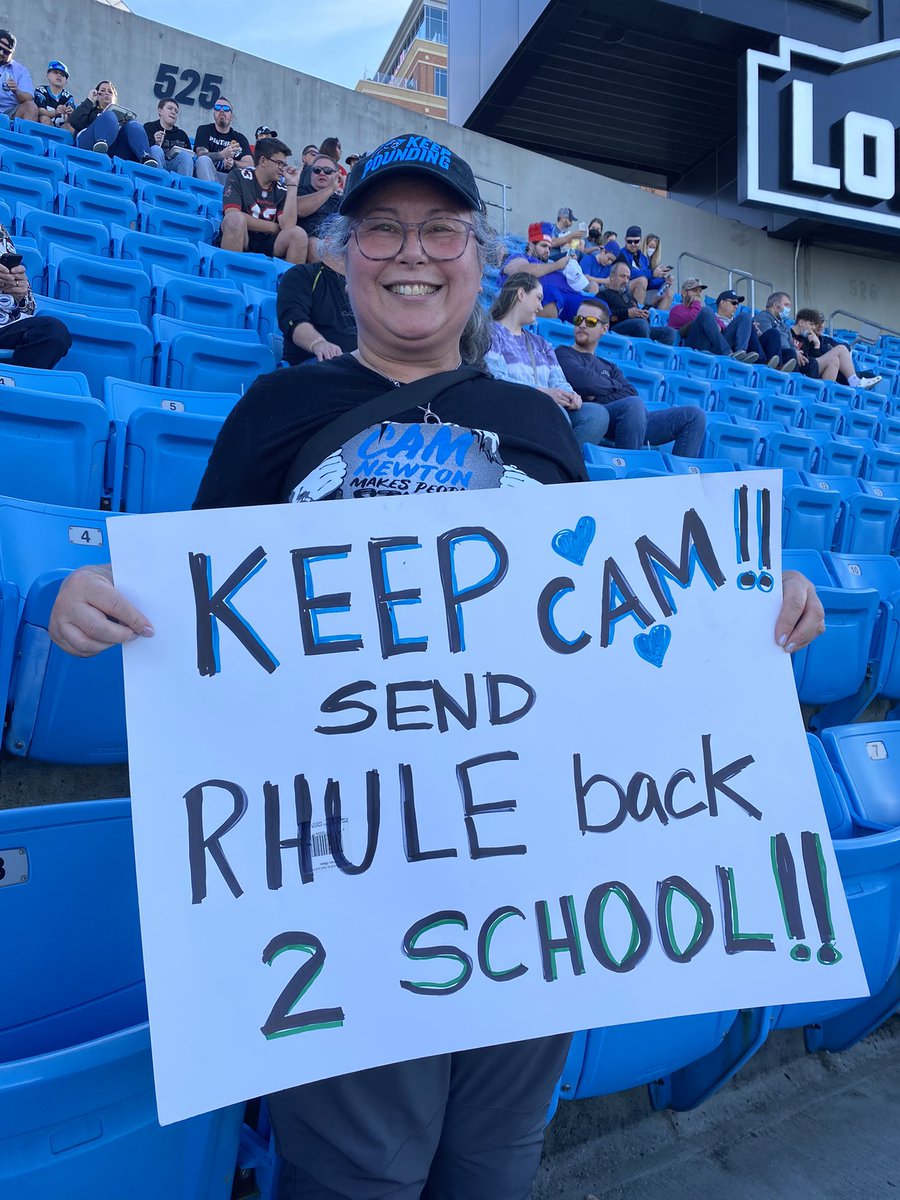 525
Lo
KEEP
POUNDING
CAM
NEWTON
MAKES PEOPL
KEEP CAM!!
SEND
RHULE back
2 SCHOOL!!
4
5
7